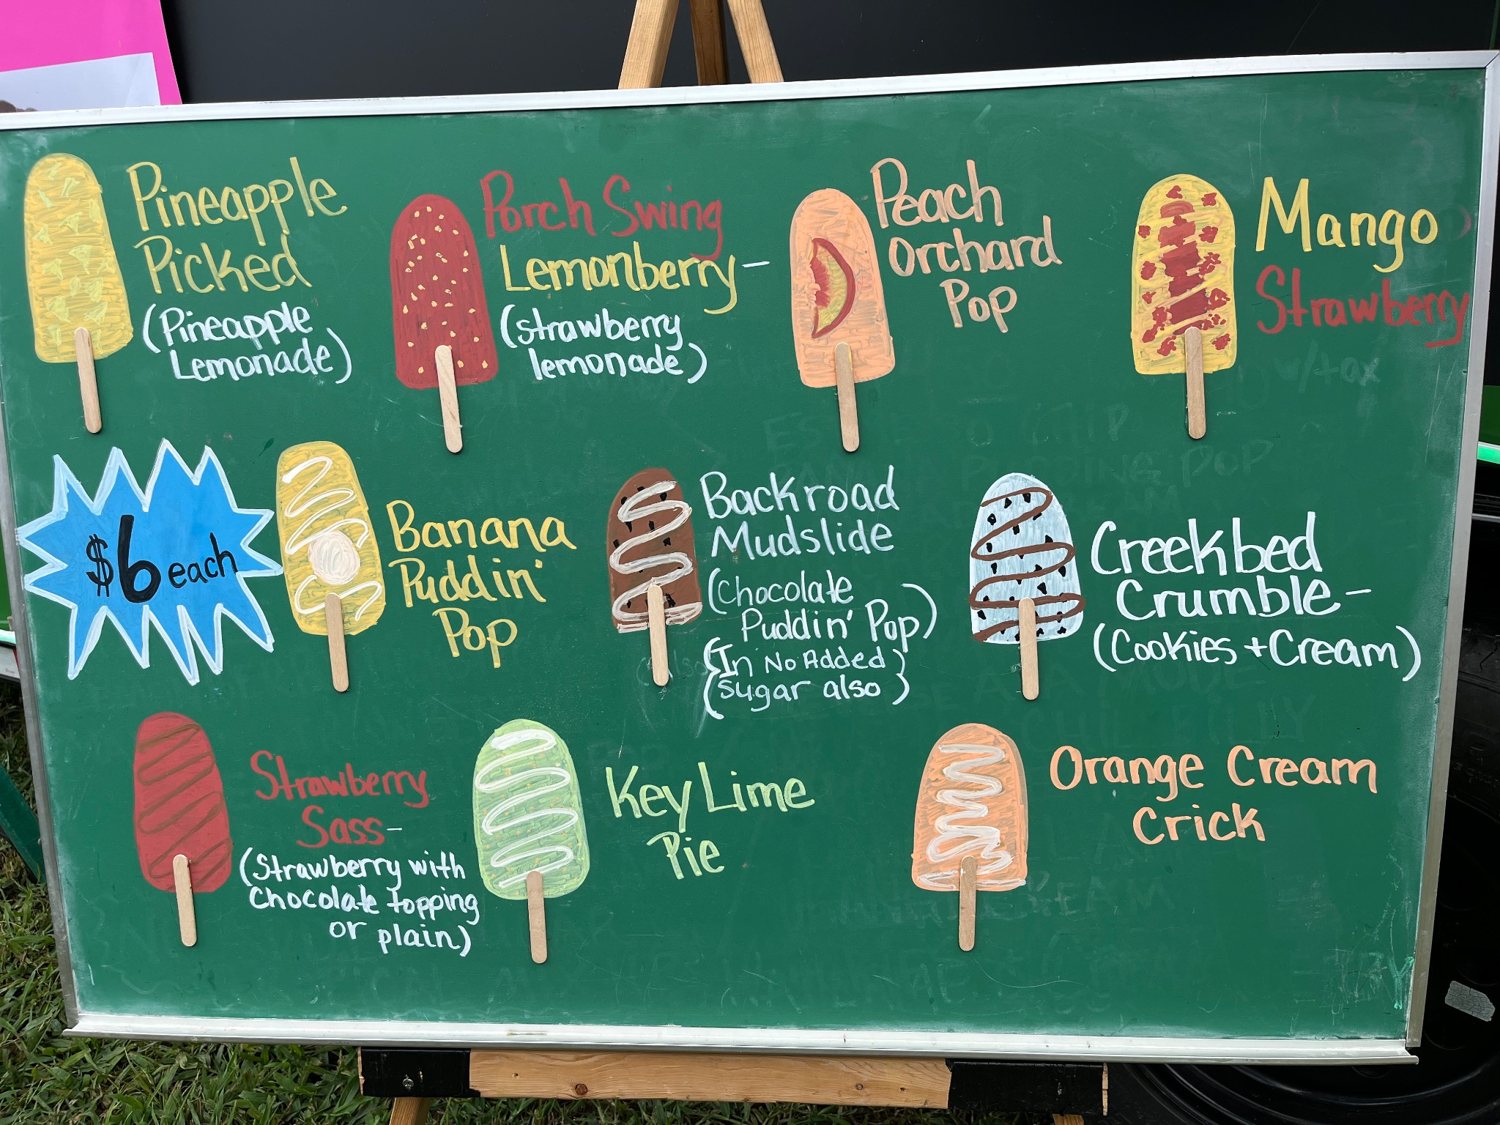 Pineapple
Picked
(Pineapple
Lemonade)
Porch Swing
Lemonberry-
(strawberry
lemonade)
Peach
Orchard
Pop
Mango
Strawberry
$6 each
Banana
Puddin'
Pop
Backroad
Mudslide
(Chocolate
Puddin' Pop)
(In No Added)
(sugar also)
Creekbed
Crumble-
(Cookies + Cream)
Strawberry
Sass-
(Strawberry with
Chocolate topping
or plain)
Key Lime
Pie
Orange Cream
Crick